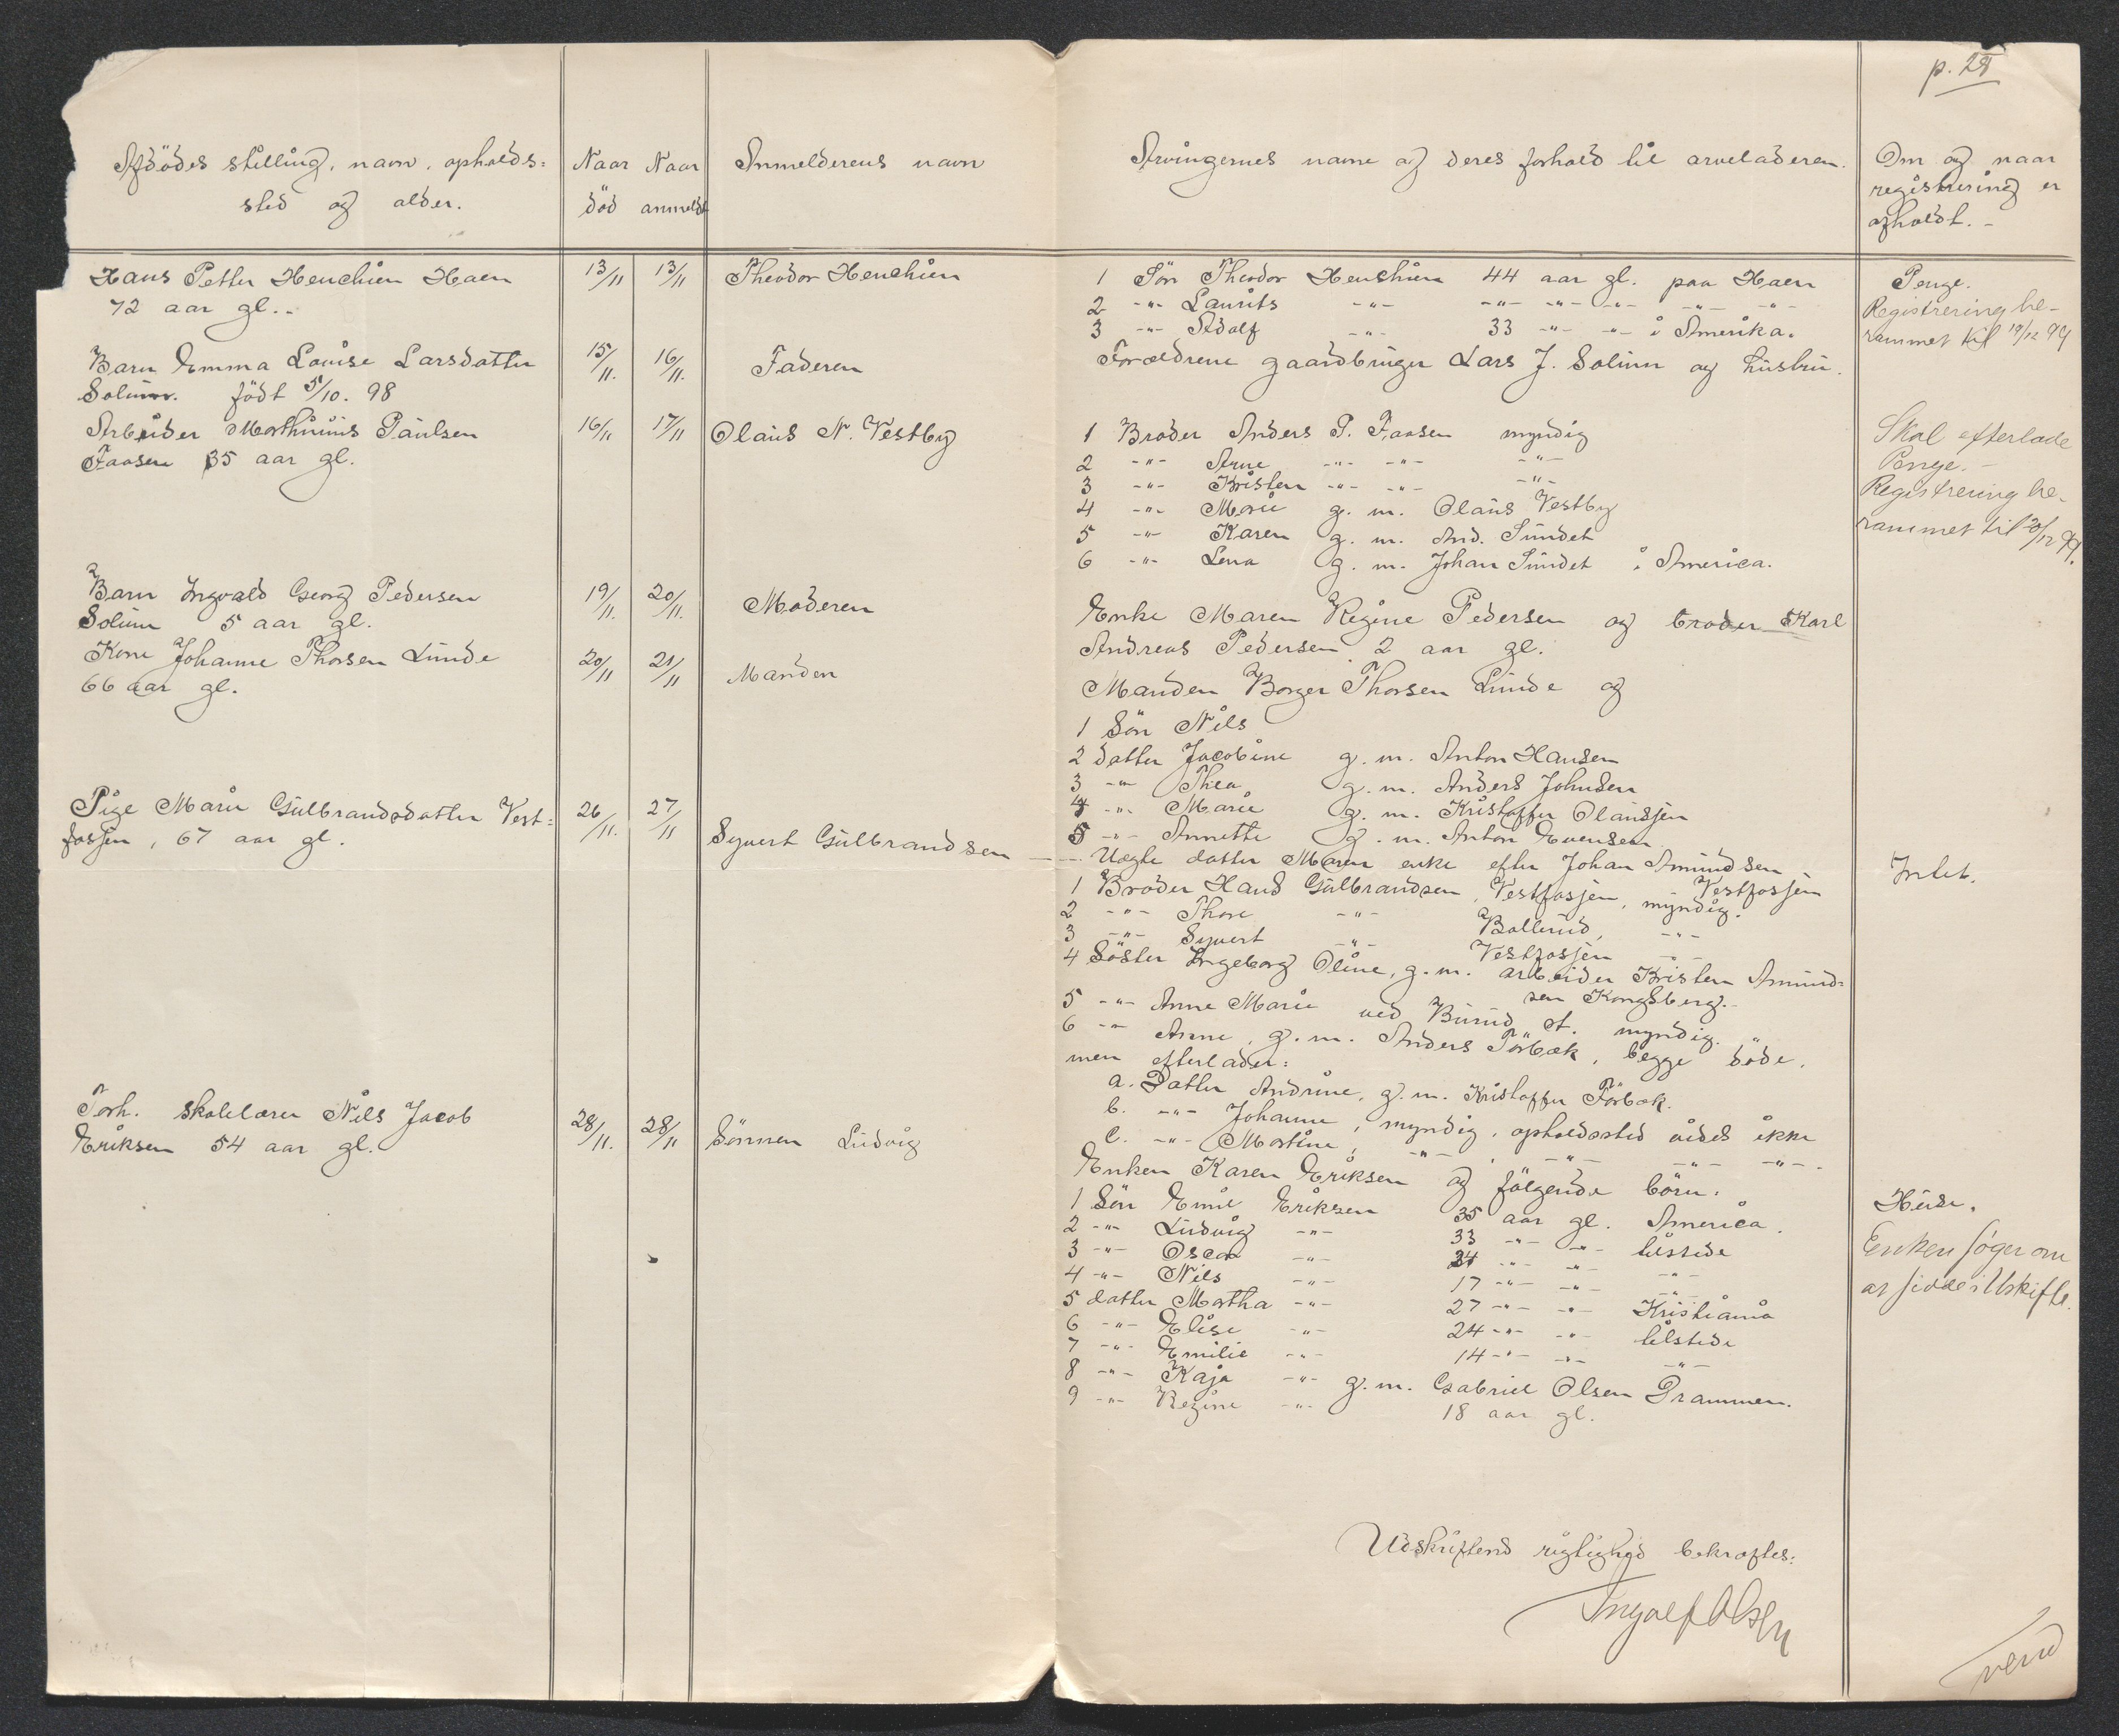 p. 28
Afdödes stilling, navn, opholds=
sted og alder.
Naar
död
Naar
anmeldt
Anmelderens navn
Arvingernes navne og deres forhold til arveladeren.
Om og naar
registrering er
afholdt. -
Hans Petter Henchien Haen
72 aar gl..
13/11
13/11
Theodor Henchien
1 Sön Theodor Henchien 44 aar gl. paa Haen
2 -"- Laurits -"- -"- -"- -"- -"- -"-
3 -"- Adolf -"- 33 -"- -"- i Amerika.
Penge.
Registrering be-
rammet til 19/12 99
Barn Emma Louise Larsdatter
Solum. födt 5/10. 98
15/11.
16/11.
Faderen
Forældrene gaardbruger Lars J. Solum og hustru.
Arbeider Marthinius Paulsen
Faasen 35 aar gl.
16/11
17/11
Olaus N. Vestby
1 Broder Anders P. Faasen myndig
2 -"- Arne -"- -"- -"-
3 -"- Kristen -"- -"- -"-
4 -"- Marie g. m. Olaus Vestby
5 -"- Karen g. m. And. Sundet
6 -"- Lena g. m. Johan Sundet i America.
Skal efterlade
Penge. -
Registrering be-
rammet til 20/12 99.
Barn Ingvald Georg Pedersen
Solum 5 aar gl.
19/11.
20/11.
Moderen
Enke Maren Regine Pedersen og broder Karl
Andreas Pedersen 2 aar gl.
Kone Johanne Thorsen Lunde
66 aar gl.
20/11
21/11
Manden
Manden Borger Thorsen Lunde og
1 Sön Nils
2 datter Jacobine g. m. Anton Hansen
3 -"- Thea g. m. Anders Johnsen
4 -"- Marie g. m. Kristoffer Olaussen
5 -"- Annette g. m. Anton Evensen
-- Uægte datter Maren enke efter Johan Amundsen
Vestfossen
Pige Marie Gulbrandsdatter Vest=
fossen, 67 aar gl.
26/11.
27/11
Syvert Gulbrandsen
1 Broder Hans Gulbrandsen, Vestfossen, myndig.
2 -"- Thore -"- Bollerud, -"-
3 -"- Syvert -"- Vestfossen -"-
4 Söster Ingeborg Oline, g. m. arbeider Kristen Amund=
sen Kongsberg.-
5 -"- Anne Marie ved Burud st. myndig.
6 -"- Anne, g. m. Anders Förbæk, begge döde,
men efterlader:
a. Datter Andrine, g. m. Kristoffer Förbæk.
b. -"- Johanne, myndig, opholdssted vides ikke
c. -"- Martine, -"- , -"- -"- -"-.
Intet.
Forh. skolelærer Nils Jacob
Eriksen 54 aar gl.
28/11.
28/11
Sönnen Ludvig
Enken Karen Eriksen og fölgende börn:
1 Sön Emil Eriksen 35 aar gl. America.
2 -"- Ludvig -"- 33 -"- -"- tilstede
3 -"- Oscar -"- 21 -"- -"- -"-
4 -"- Nils -"- 17 -"- -"- -"-
5 datter Martha -"- 27 -"- -"- Kristiania
6 -"- Elise -"- 24 -"- -"- tilstede
7 -"- Emilie -"- 14 -"- -"- -"-
8 -"- Kaja -"- g. m. Gabriel Olsen Drammen.
9 -"- Regine -"- 18 aar gl.
Enken söger om
at sidde i Uskifte.
Udskriftens rigtighed bekræftes:
Ingolf Olsen
vend